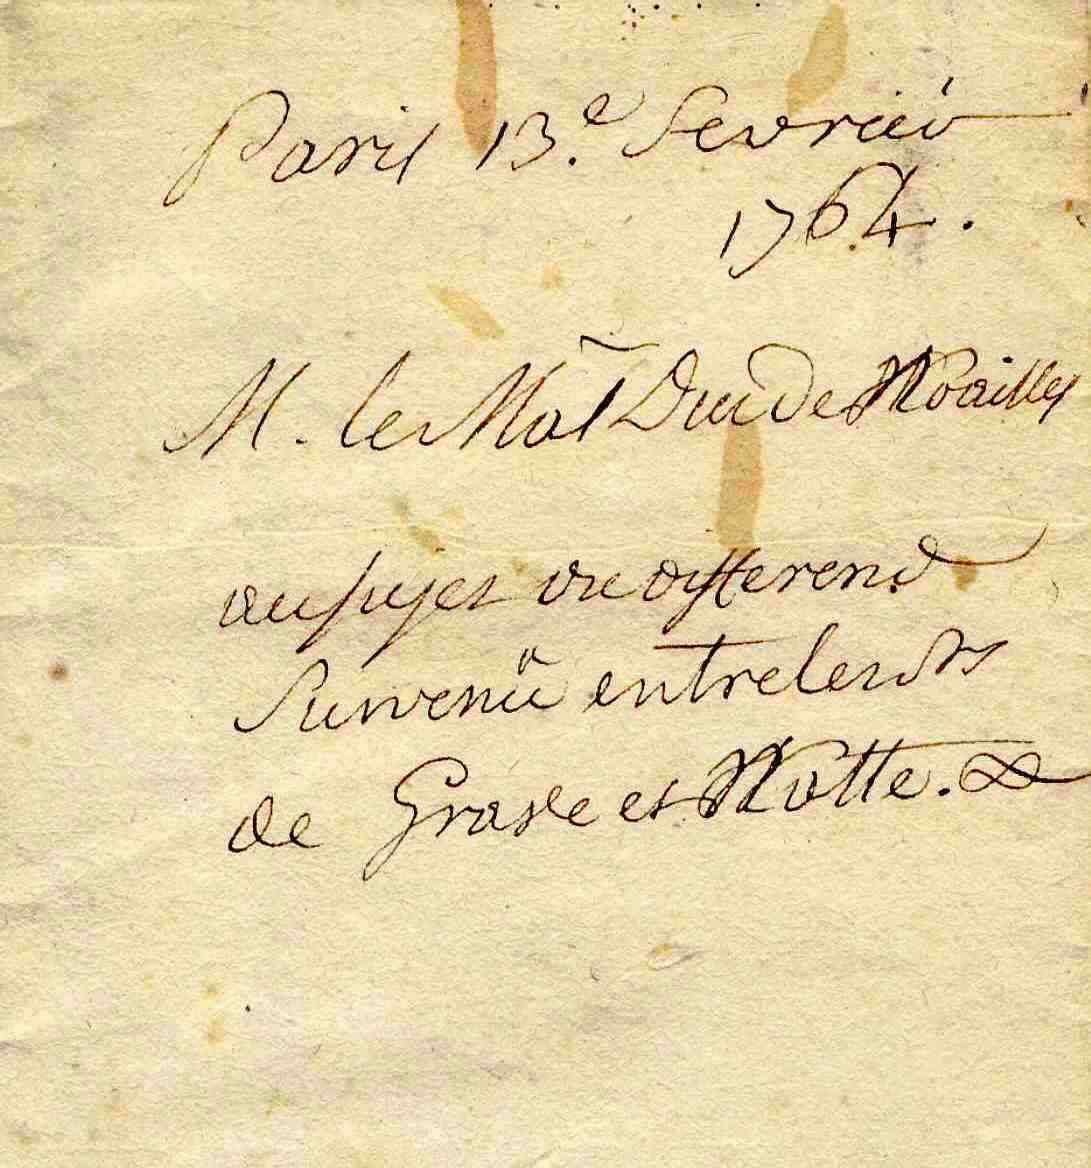 Paris 13.e fevrier
1764.
M. le Mal Duc de Noailles
au sujet du differend
Survenü entre les Srs
de Grave et Motte.